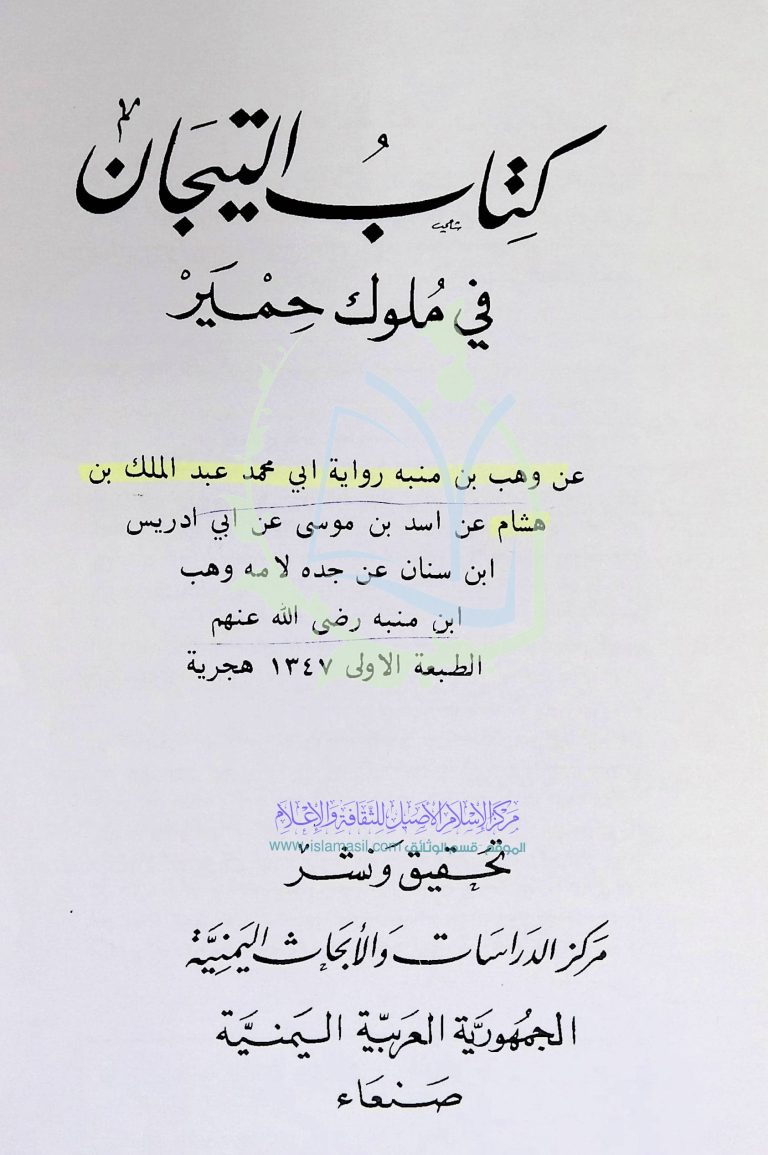 كِتَابُ التِّيجَان
في مُلوك حِمْيَرْ
عن وهب بن منبه رواية ابي محمد عبد الملك بن
هشام عن اسد بن موسى عن ابي ادريس
ابن سنان عن جده لامه وهب
ابن منبه رضى الله عنهم
الطبعة الاولى ١٣٤٧ هجرية
مركز الإسلام الأصيل للثقافة والإعلام
الموقع - قسم الوثائق www.islamasil.com
تحقيق وَنشر
مَركز الدرَاسَات وَالأبحَاث اليَمنِيَّة
الجمهُوريَّة العَرَبيَّة اليَمَنيَّة
صَنعَاء